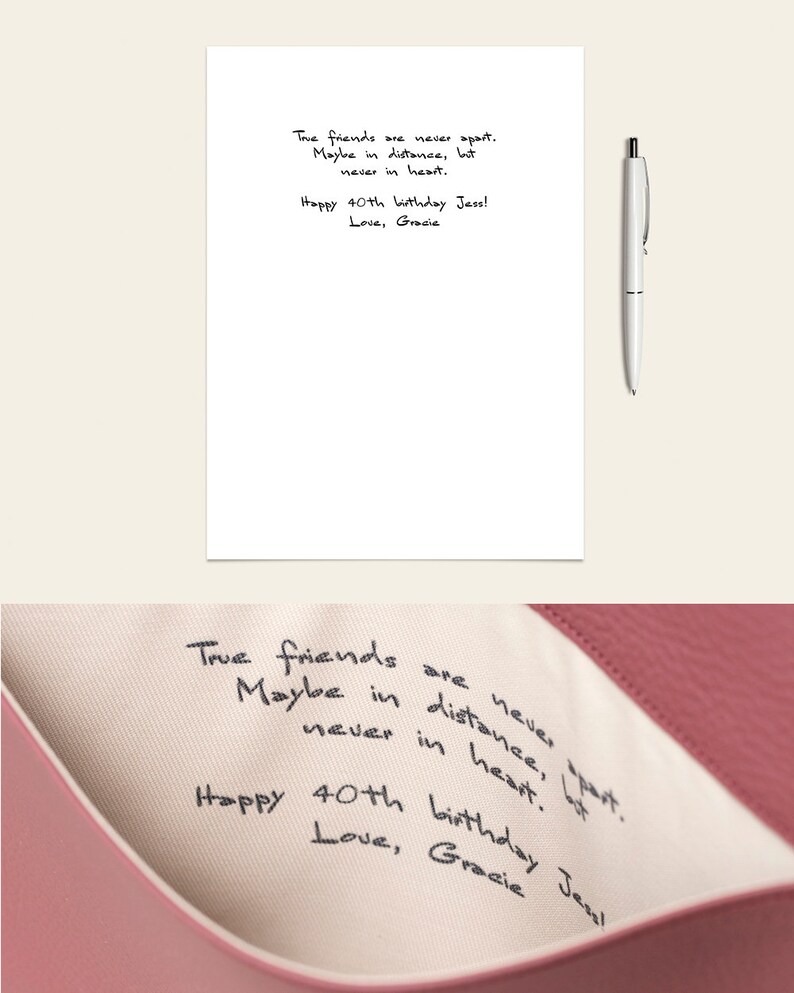 True friends are never apart.
Maybe in distance, but
never in heart.
Happy 40th birthday Jess!
Love, Gracie
True friends are never apart.
Maybe in distance, but
never in heart.
Happy 40th birthday Jess!
Love, Gracie